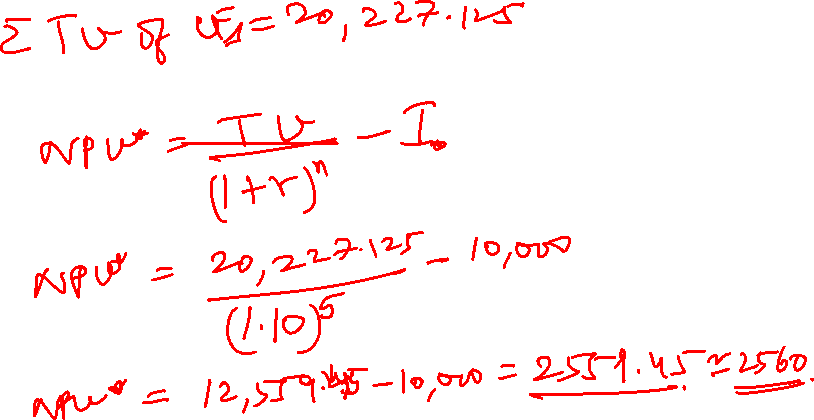 Σ TV of CFs = 20,227.125
NPV* = TV / (1+r)^n - I₀
NPV* = 20,227.125 / (1.10)^5 - 10,000
NPV* = 12,559.45 - 10,000 = 2559.45 ≈ 2560.